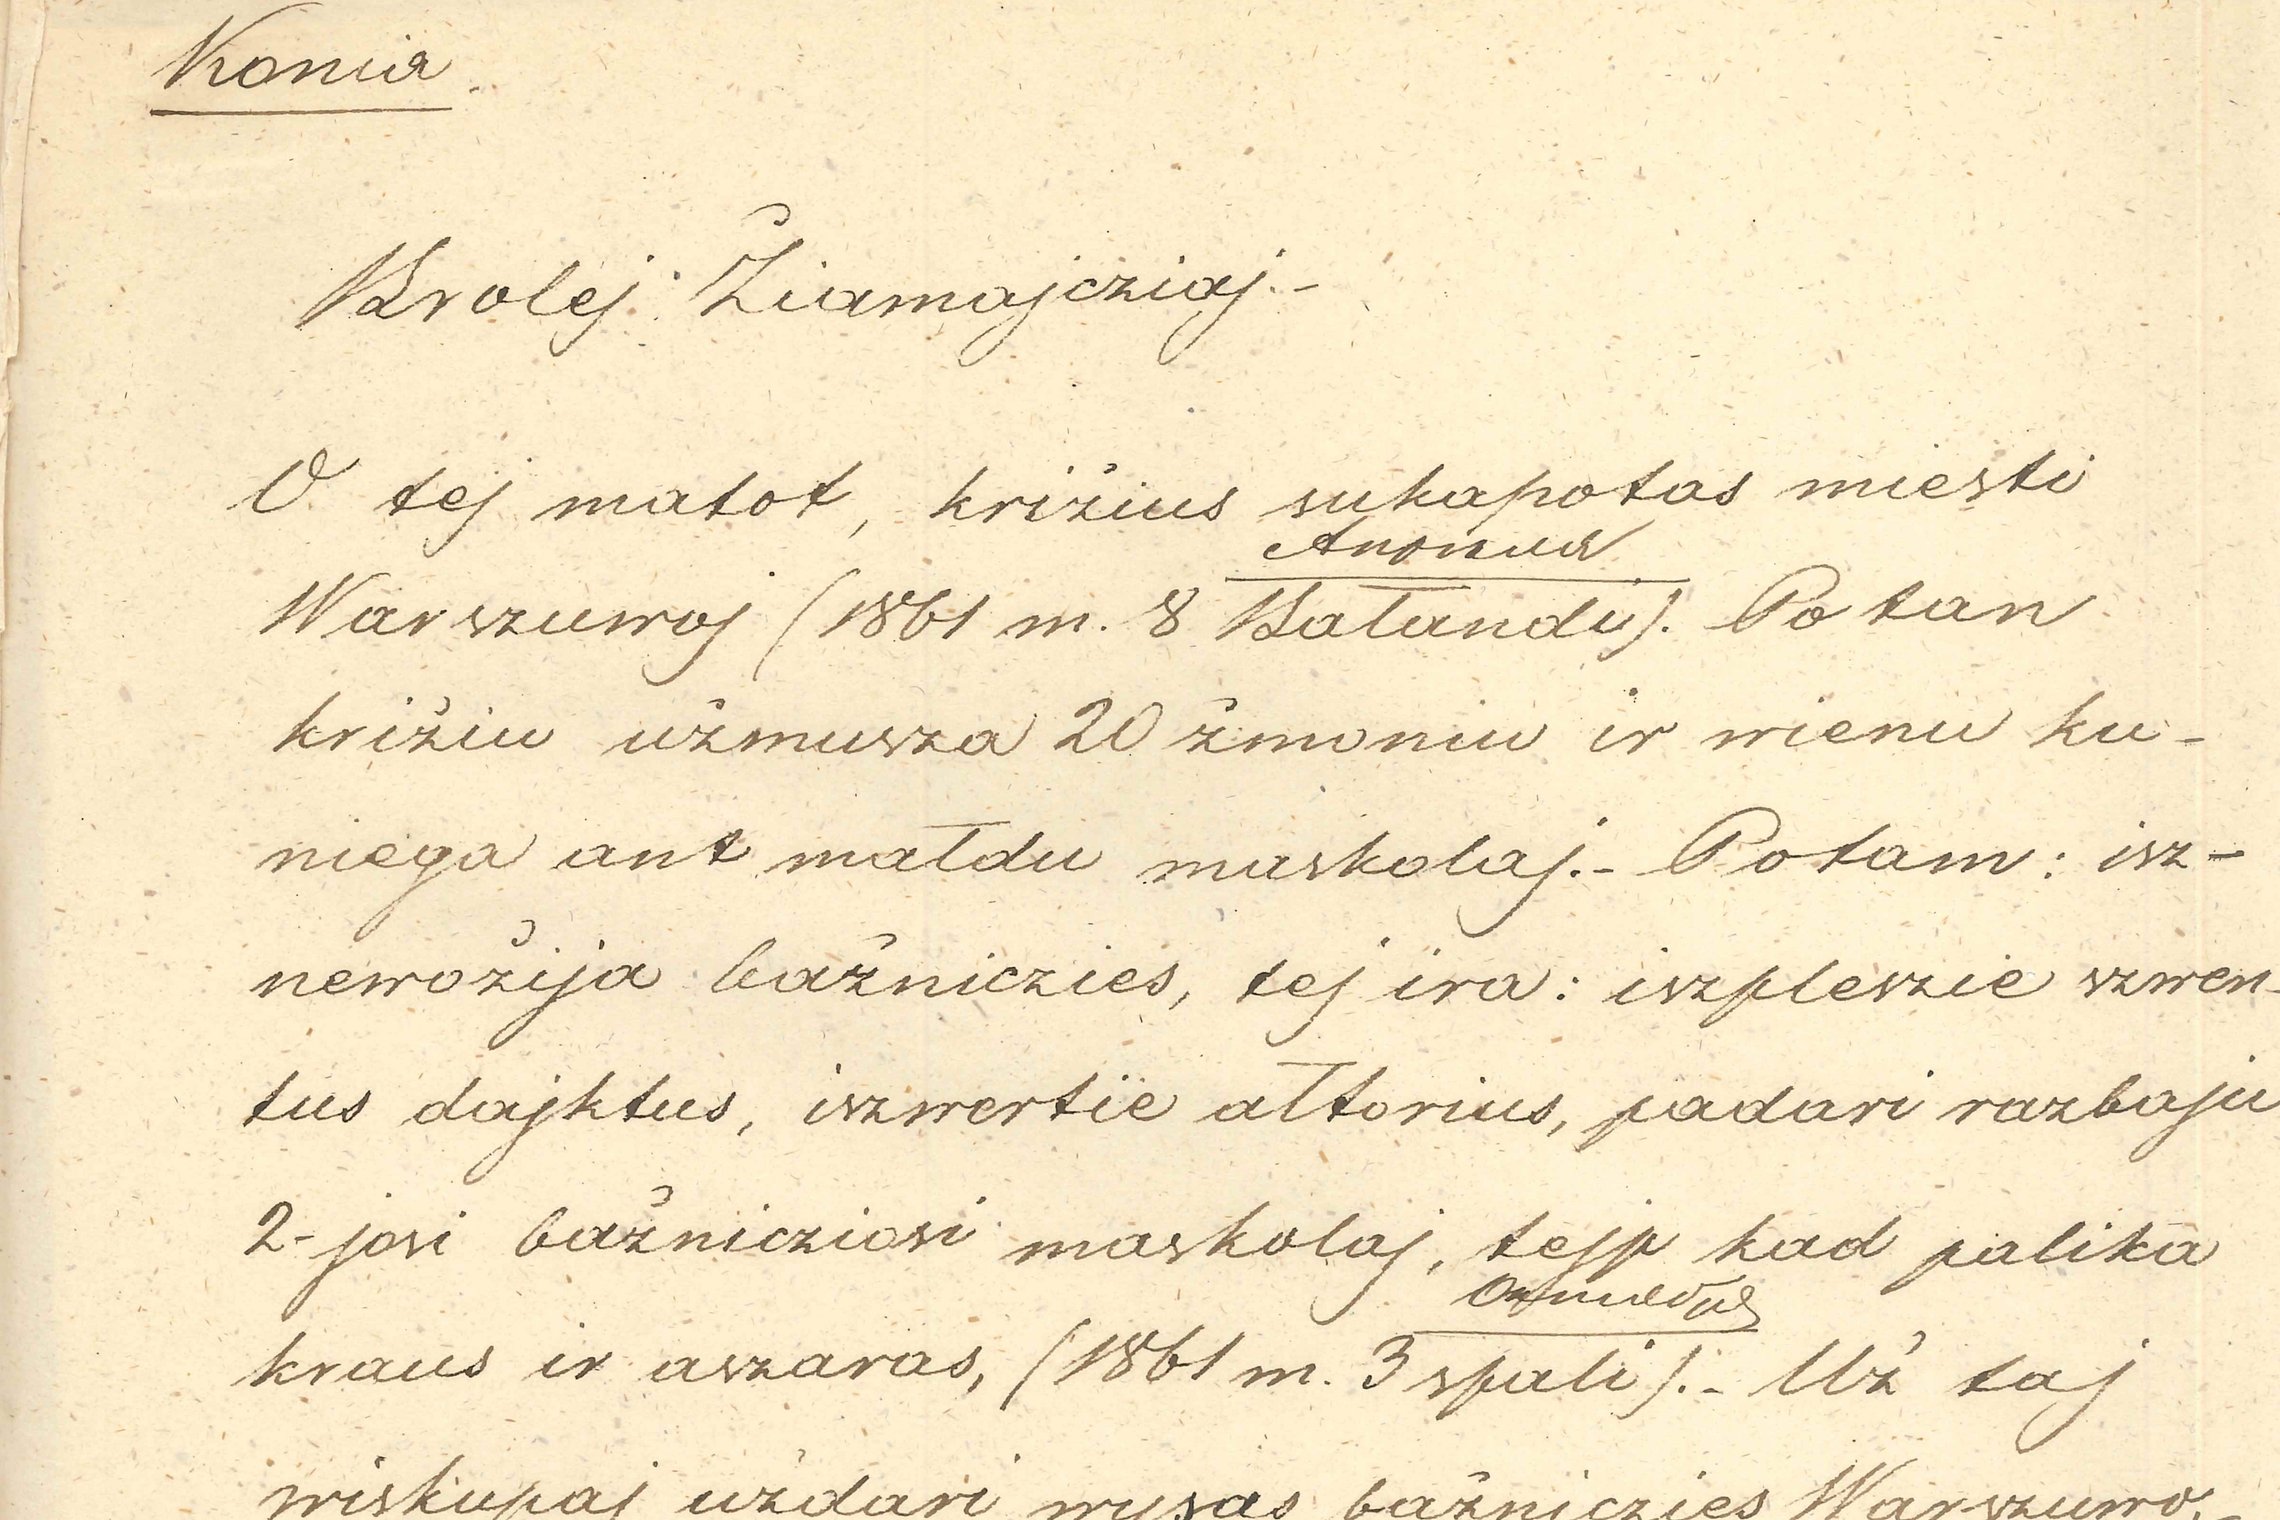 Копия.
Brolej Żiamajcziaj.-
O tej matot, križius sukapotas miesti
Апрѣля
Warszuwoj (1861 m. 8 Bałandu). Po tan
križiu užmusza 20 žmoniu ir wienu ku-
niega ant małdu maskolaj.- Potam: isz-
newožija bažniczies, tej ira: iszpleszie szwen-
tus dajktus, iszwertïe ałtorius, padari razbaju
2-josi bažnicziosi maskolaj, tejp kad palika
Октября
kraus ir aszaras, (1861 m. 3 spali).- Už taj
wiskupaj uždari wysas bažniczies Warszuwo,-